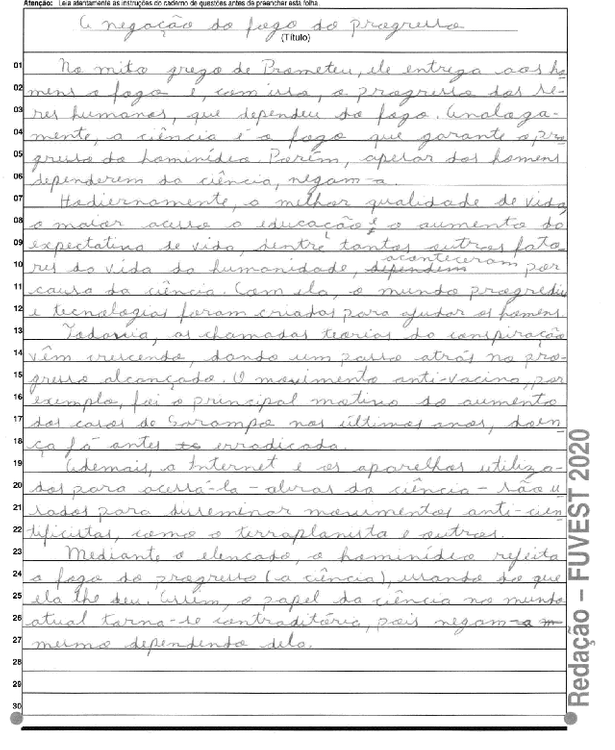 Atenção: Leia atentamente as instruções do caderno de questões antes de preencher esta folha.
A negação do fogo do progresso
(Título)
01 No mito grego de Prometeu, ele entrega aos ho
02 mens o fogo e, com isso, o progresso dos se-
03 res humanos, que dependeu do fogo. Analoga-
04 mente, a ciência é o fogo que garante o pro
05 gresso do hominídeo. Porém, apesar dos homens
06 dependerem da ciência, negam-a.
07 Hodiernamente, a melhor qualidade de vida,
08 o maior acesso a educação e o aumento da
09 expectativa de vida, dentre tantos outros fato-
10 res da vida da humanidade, dependem aconteceram por
11 causa da ciência. Com ela, o mundo progrediu
12 e tecnologias foram criadas para ajudar os homens.
13 Todavia, as chamadas teorias da conspiração
14 vêm crescendo, dando um passo atrás no pro-
15 gresso alcançado. O movimento anti-vacina, por
16 exemplo, foi o principal motivo do aumento
17 dos casos de Sarampo nos últimos anos, doen
18 ça já antes erradicada.
19 Ademais, a Internet e os aparelhos utiliza-
20 dos para acessá-la - obras da ciência - são u
21 sados para disseminar movimentos anti-cien
22 tificistas, como o terraplanista e outros.
23 Mediante o elencado, o hominídeo rejeita
24 o fogo do progresso (a ciência), usando do que
25 ela lhe deu. Assim, o papel da ciência no mundo
26 atual torna-se contraditório, pois negam-a m
27 mesmo dependendo dela.
28
29
30
Redação – FUVEST 2020